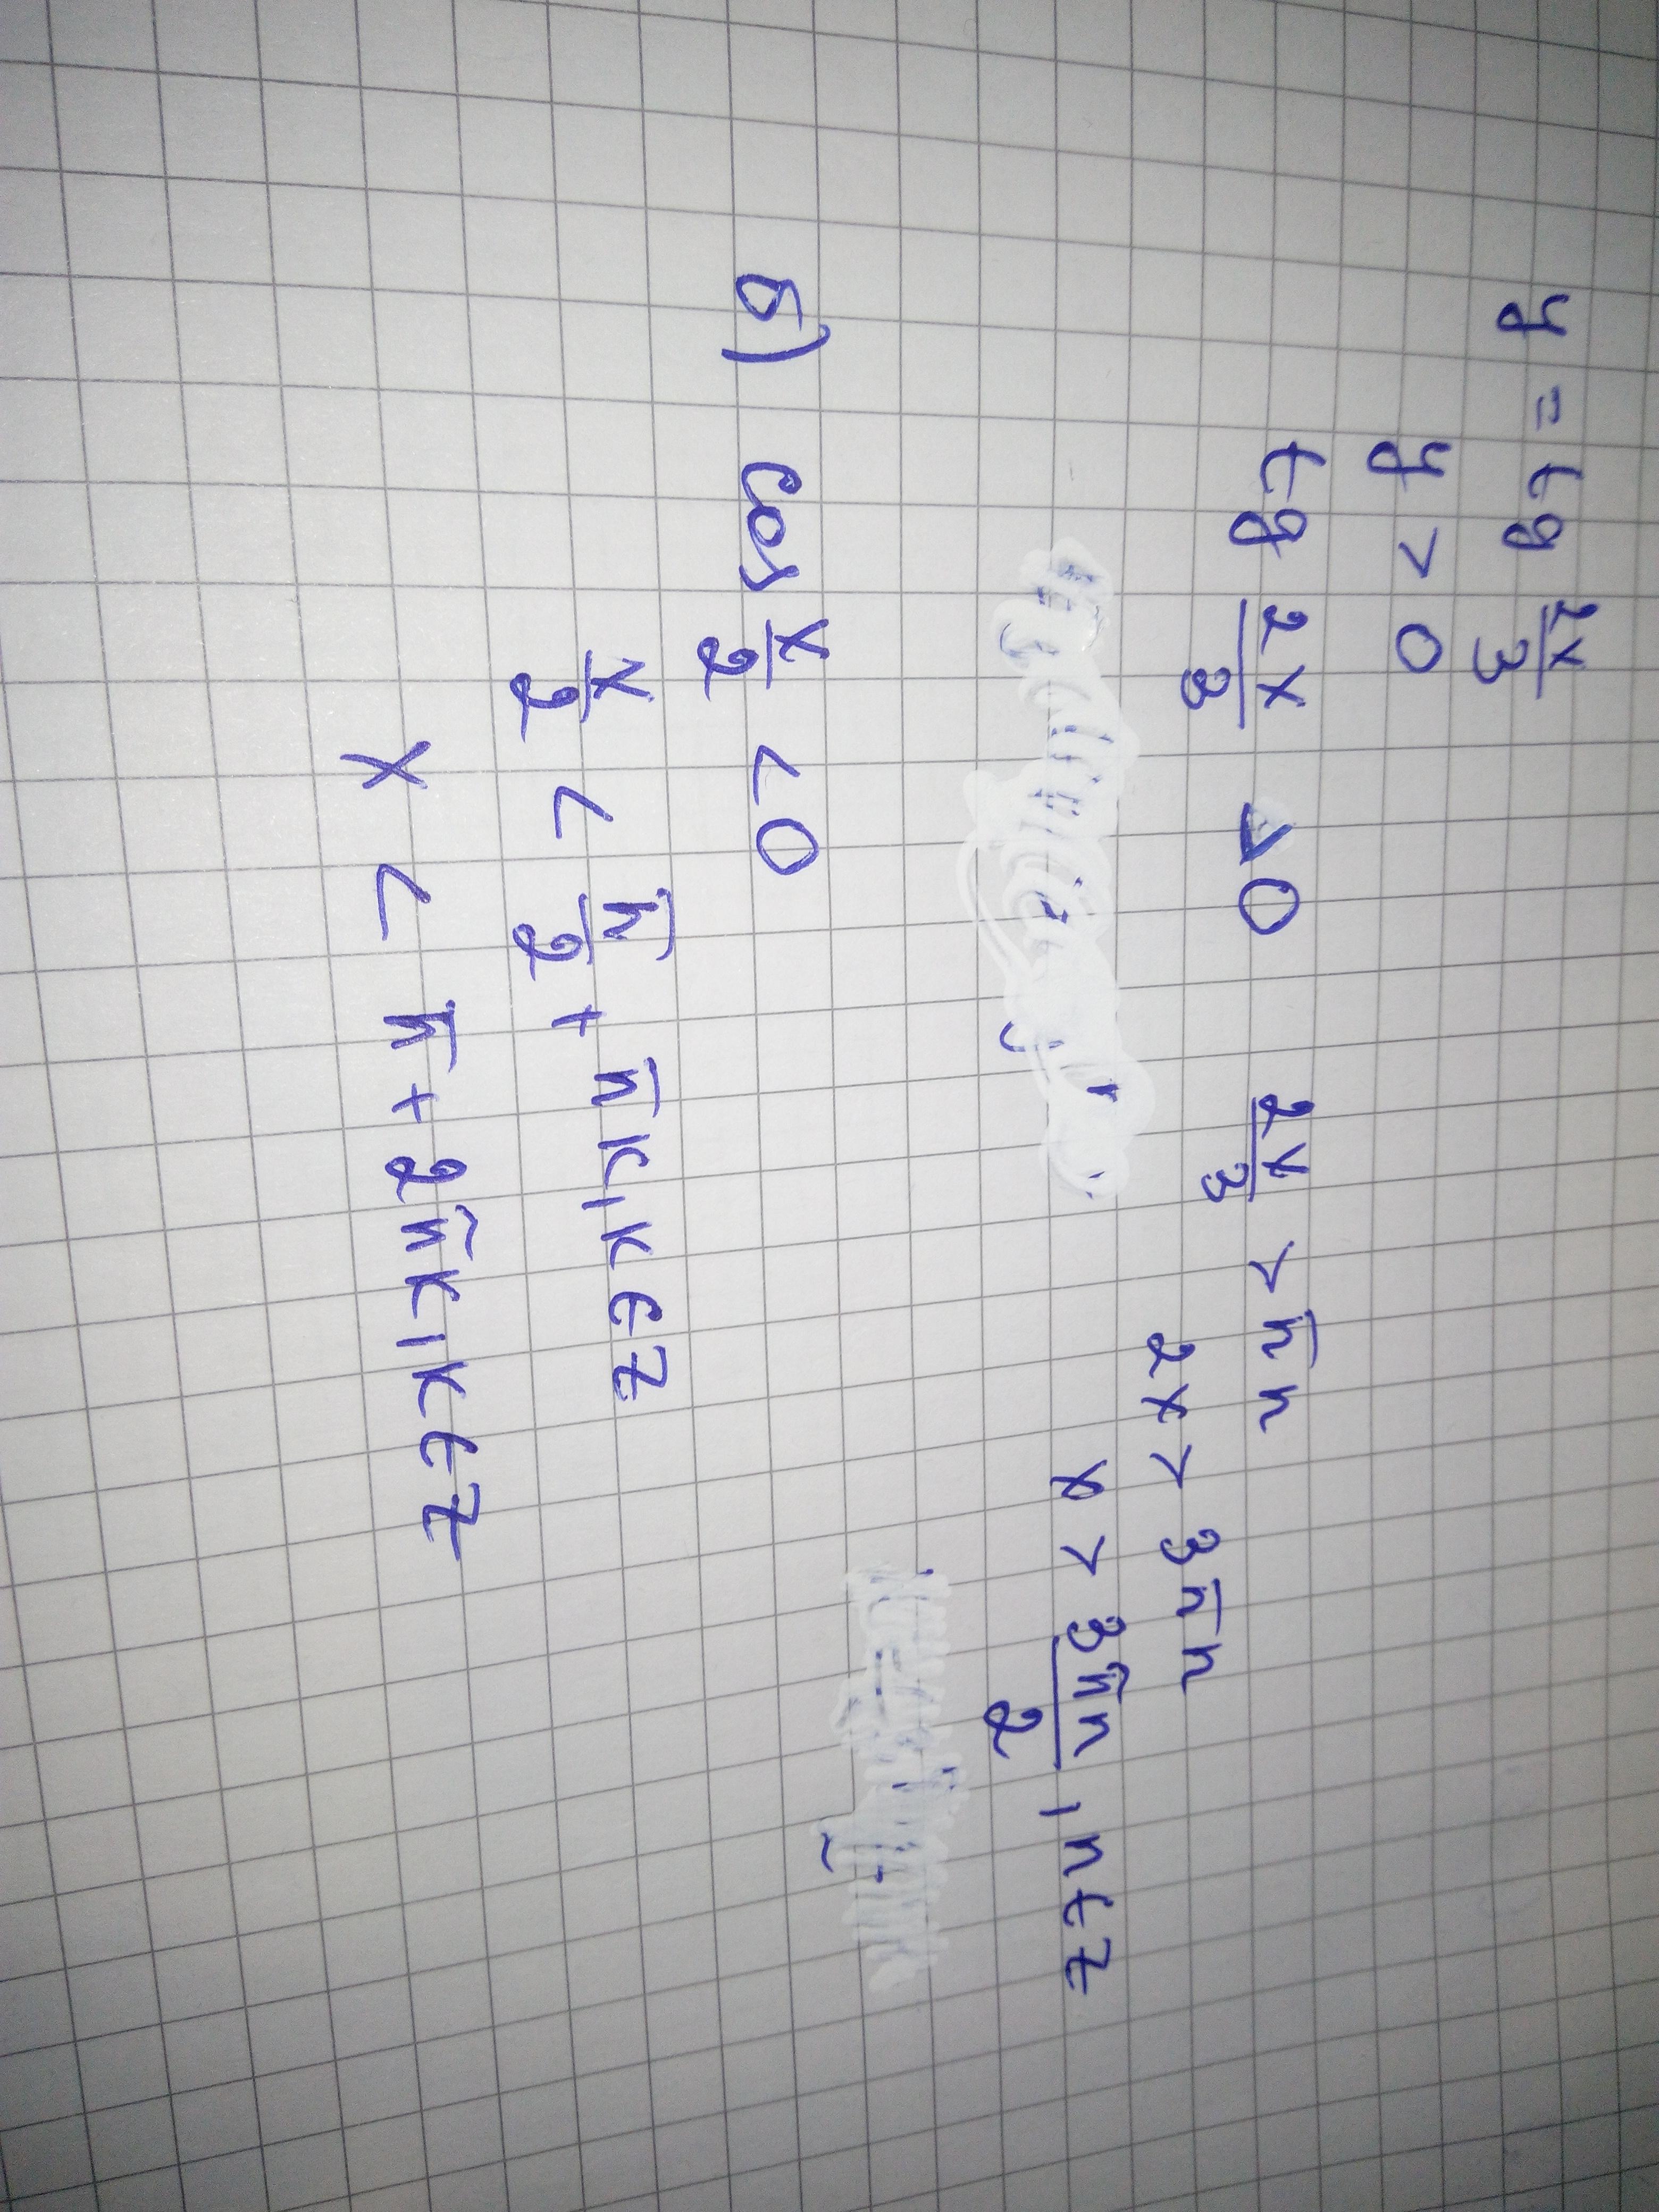 y = tg 2x/3
y > 0
tg 2x/3 > 0 2x/3 > πn
2x > 3πn
x > 3πn/2, n∈Z
б) cos x/2 < 0
x/2 < π/2 + πk, k∈Z
x < π + 2πk, k∈Z